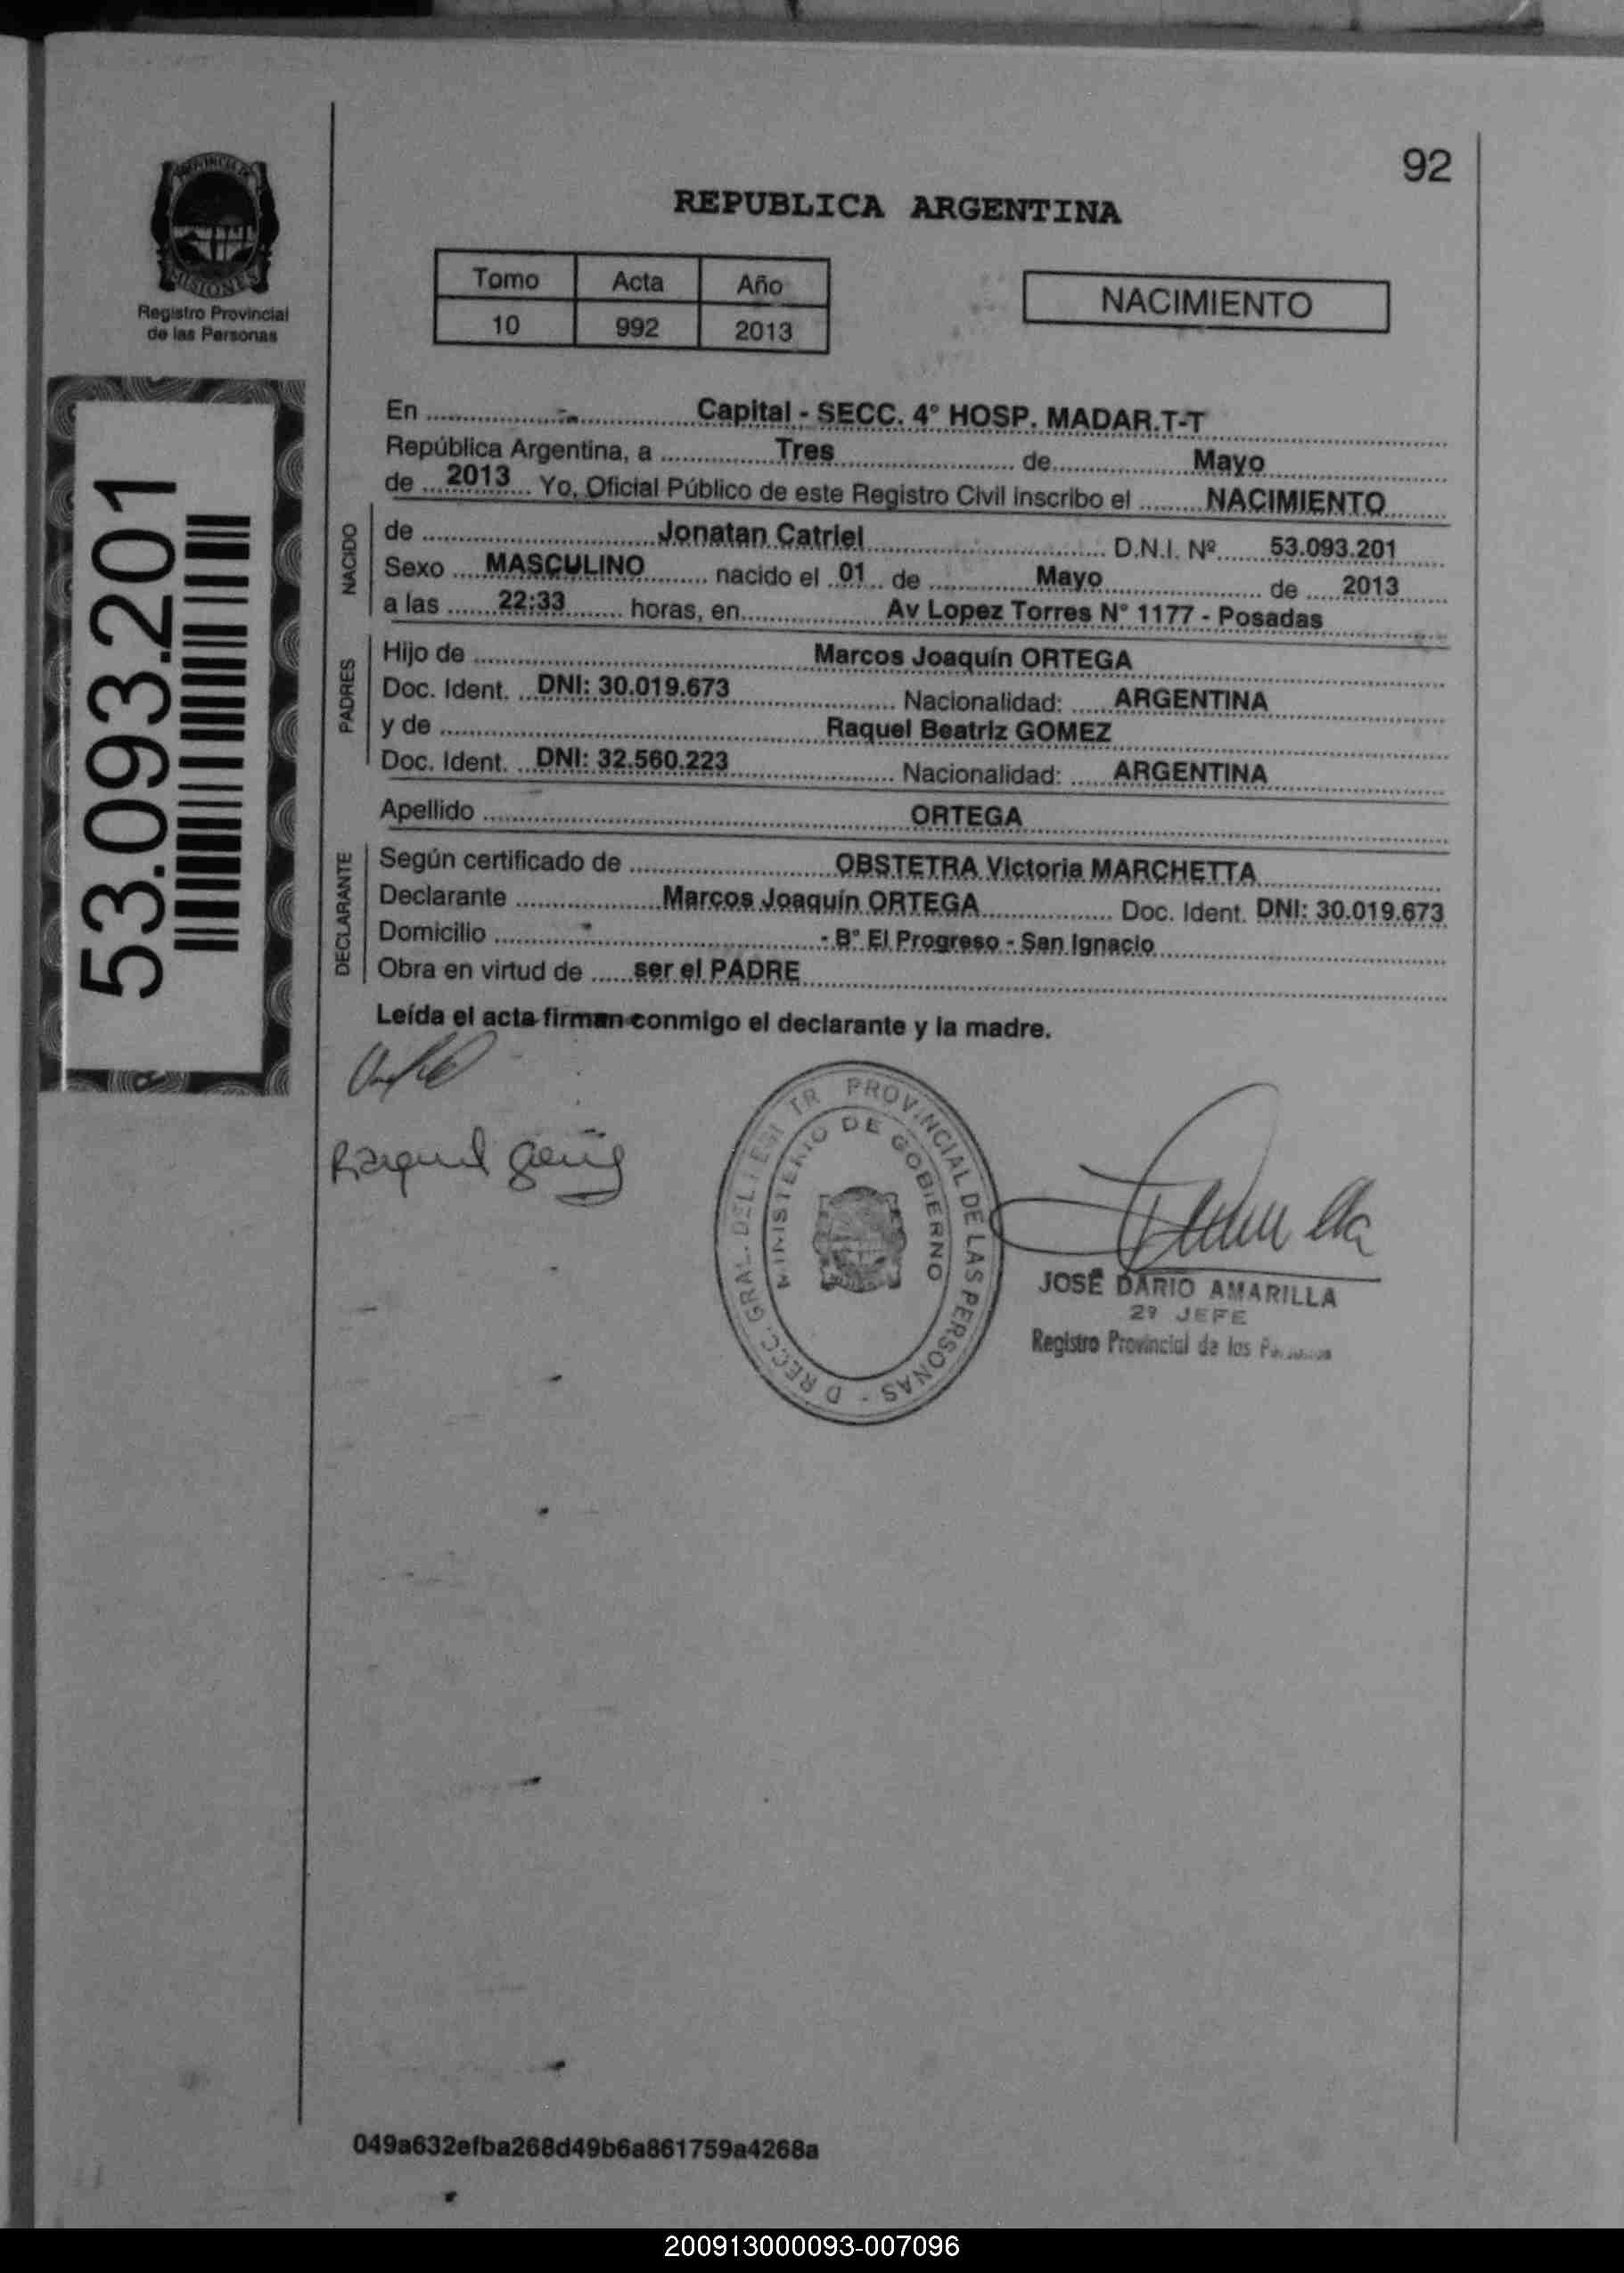 92
PROVINCIA DE
MISIONES
Registro Provincial
de las Personas
REPUBLICA ARGENTINA
Tomo Acta Año
10 992 2013
NACIMIENTO
53.093.201
En Capital - SECC. 4° HOSP. MADAR.T-T
República Argentina, a Tres de Mayo
de 2013 Yo, Oficial Público de este Registro Civil inscribo el NACIMIENTO
NACIDO
de Jonatan Catriel D.N.I. Nº 53.093.201
Sexo MASCULINO nacido el 01 de Mayo de 2013
a las 22:33 horas, en Av Lopez Torres N° 1177 - Posadas
PADRES
Hijo de Marcos Joaquín ORTEGA
Doc. Ident. DNI: 30.019.673 Nacionalidad: ARGENTINA
y de Raquel Beatriz GOMEZ
Doc. Ident. DNI: 32.560.223 Nacionalidad: ARGENTINA
Apellido ORTEGA
DECLARANTE
Según certificado de OBSTETRA Victoria MARCHETTA
Declarante Marcos Joaquín ORTEGA Doc. Ident. DNI: 30.019.673
Domicilio - B° El Progreso - San Ignacio
Obra en virtud de ser el PADRE
Leída el acta firman conmigo el declarante y la madre.
Raquel
PROVINCIAL DE LAS PERSONAS
MINISTERIO DE GOBIERNO
JOSE DARIO AMARILLA
2º JEFE
Registro Provincial de las
049a632efba268d49b6a861759a4268a
200913000093-007096